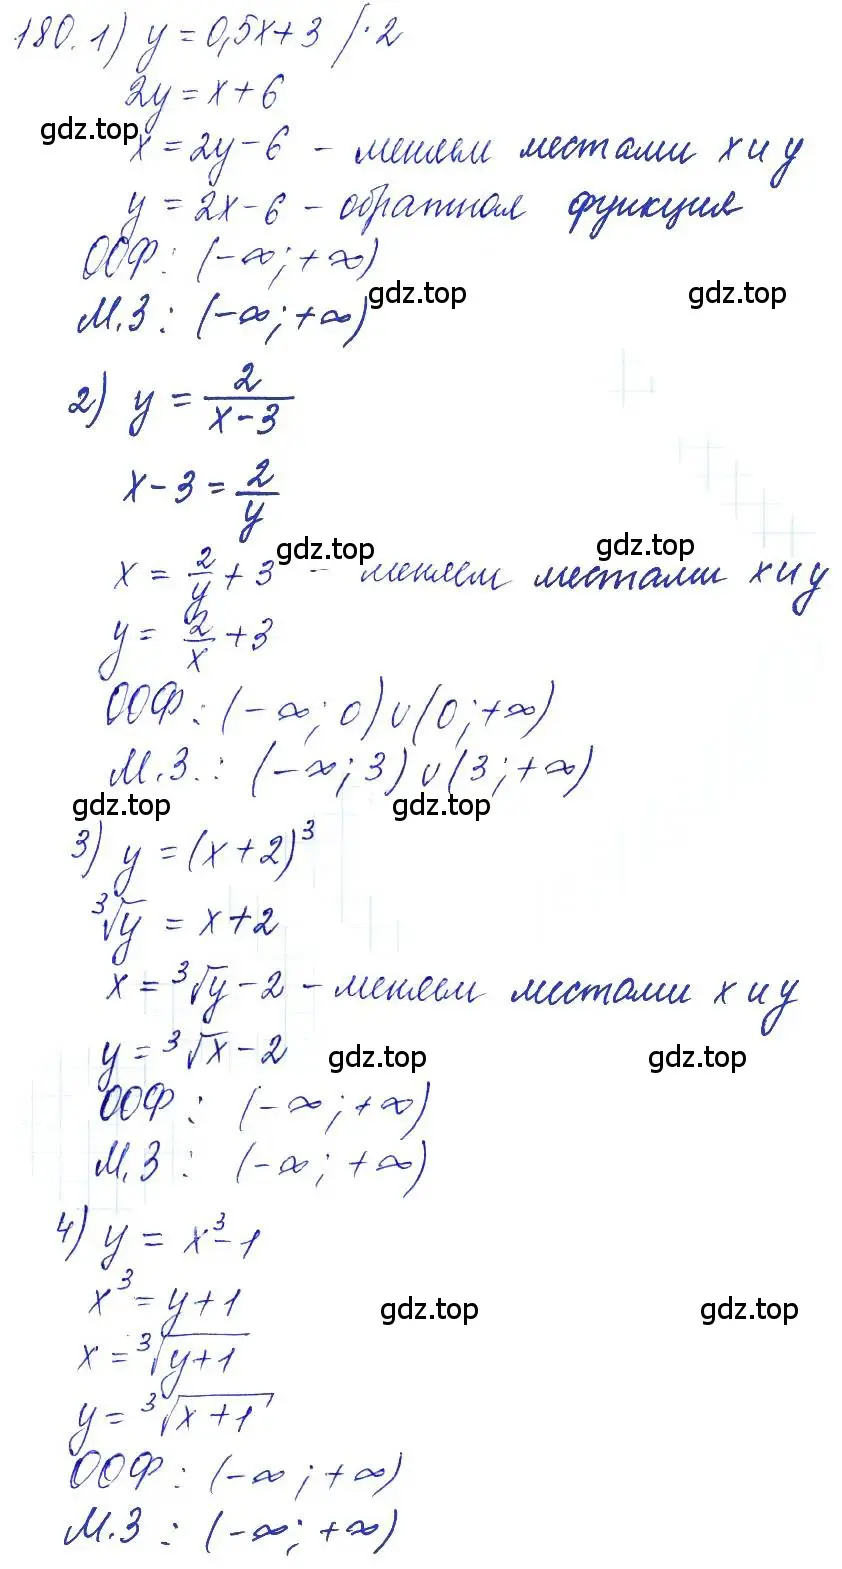 180. 1) y = 0,5x + 3 /·2
2y = x + 6
gdz.top
x = 2y - 6 - меняем местами x и y
y = 2x - 6 - обратная функция
ООФ: (-∞; +∞)
gdz.top gdz.top
М.З: (-∞; +∞)
2) y = 2/(x - 3)
x - 3 = 2/y
gdz.top gdz.top
x = 2/y + 3 - меняем местами x и y
y = 2/x + 3
ООФ: (-∞; 0) ∪ (0; +∞)
М.З.: (-∞; 3) ∪ (3; +∞)
gdz.top gdz.top
3) y = (x + 2)³
³√y = x + 2
x = ³√y - 2 - меняем местами x и y
y = ³√x - 2
gdz.top gdz.top
ООФ: (-∞; +∞)
М.З: (-∞; +∞)
4) y = x³ - 1
x³ = y + 1
gdz.top gdz.top
x = ³√(y + 1)
y = ³√(x + 1)
ООФ: (-∞; +∞)
М.З: (-∞; +∞)